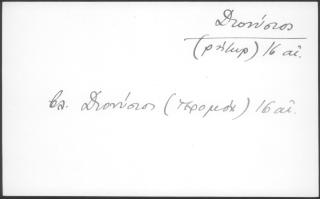 Διονύσιος
(ρήτωρ) 16 αἰ.
βλ. Διονύσιος (ἱερομόν) 16 αἰ.